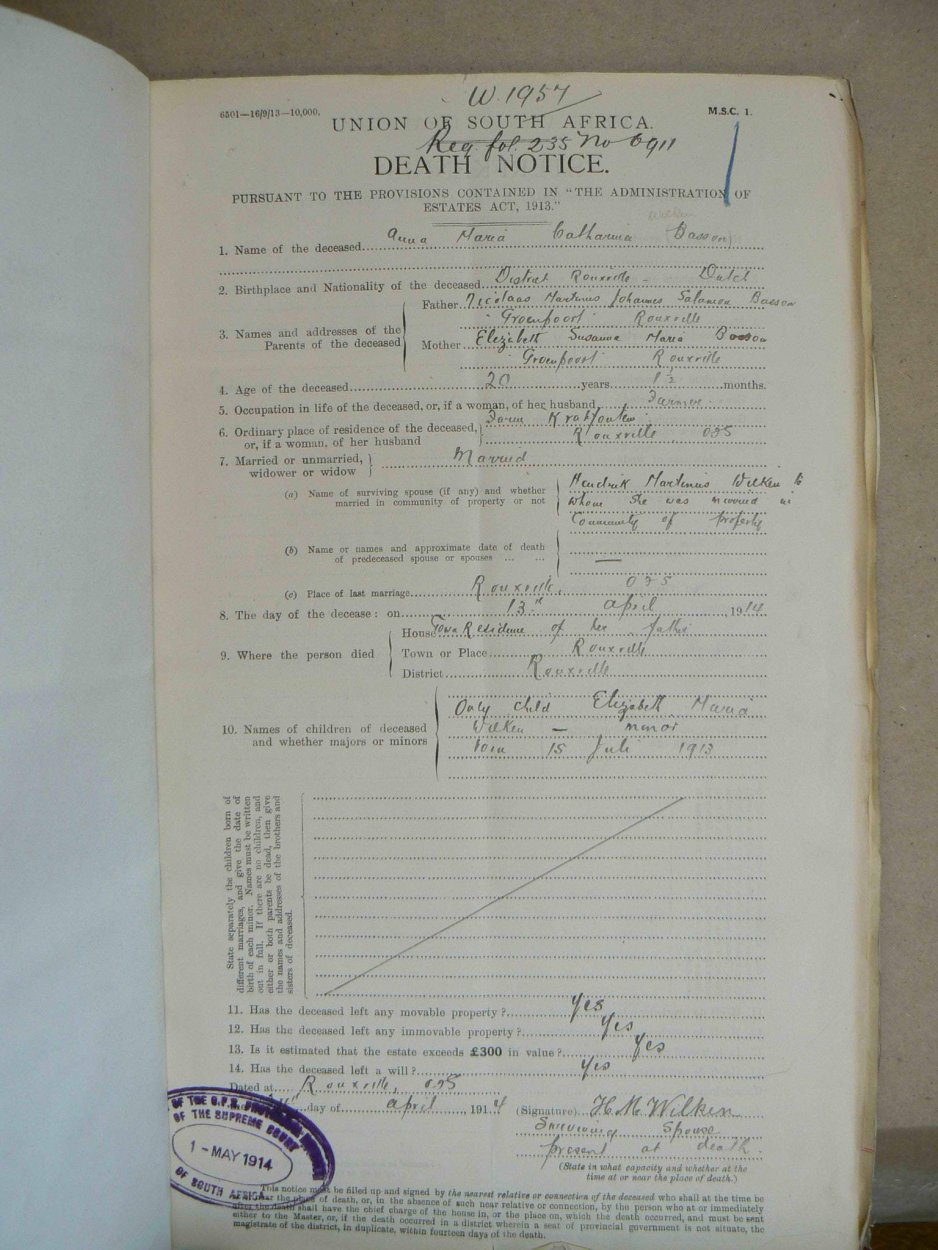 W. 1957
6501—16/9/13—10,000.
M.S.C. 1.
UNION OF SOUTH AFRICA.
Reg. fol. 235 No 6911
DEATH NOTICE.
PURSUANT TO THE PROVISIONS CONTAINED IN "THE ADMINISTRATION OF
ESTATES ACT, 1913."
Wilken
1. Name of the deceased Anna Maria Catharina (Basson)
2. Birthplace and Nationality of the deceased District Rouxville - Dutch
3. Names and addresses of the Parents of the deceased
Father Nicolaas Martinus Johannes Salamon Basson
Groenpoort Rouxville
Mother Elizabeth Susanna Maria Basson
Groenpoort Rouxville
4. Age of the deceased 20 years 1½ months.
5. Occupation in life of the deceased, or, if a woman, of her husband Farmer
6. Ordinary place of residence of the deceased, or, if a woman, of her husband
Farm
Rouxville OFS
7. Married or unmarried, widower or widow Married
(a) Name of surviving spouse (if any) and whether married in community of property or not
Hendrik Martinus Wilken to
whom she was married in
Community of property
(b) Name or names and approximate date of death of predeceased spouse or spouses ... ... —
(c) Place of last marriage Rouxville, OFS
8. The day of the decease: on 13th April 1914
9. Where the person died
House Town Residence of her father
Town or Place Rouxville
District Rouxville
10. Names of children of deceased and whether majors or minors
Only child Elizabeth Maria
Wilken — minor
born 15 Juli 1913
State separately the children born of
different marriages, and give the date of
birth of each minor. Names must be written
out in full. If there are no children, and
either or both parents be dead, then give
the names and addresses of the brothers and
sisters of deceased.
11. Has the deceased left any movable property? Yes
12. Has the deceased left any immovable property? Yes
13. Is it estimated that the estate exceeds £300 in value? Yes
14. Has the deceased left a will? Yes
Dated at Rouxville, OFS
day of April, 1914
(Signature) H. M. Wilken
Surviving Spouse
present at death.
(State in what capacity and whether at the
time at or near the place of death.)
OF THE O.F.S. PROVINCIAL DIVISION
OF THE SUPREME COURT
1 - MAY 1914
OF SOUTH AFRICA
This notice must be filled up and signed by the nearest relative or connection of the deceased who shall at the time be
at or near the place of death, or, in the absence of such near relative or connection, by the person who at or immediately
after the death shall have the chief charge of the house in, or the place on, which the death occurred, and must be sent
either to the Master, or, if the death occurred in a district wherein a seat of provincial government is not situate, the
magistrate of the district, in duplicate, within fourteen days of the death.